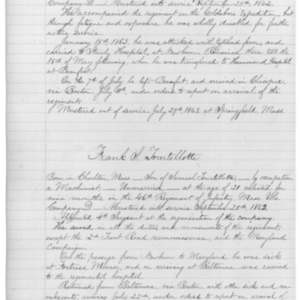 Company D — Mustered into service September 25th 1862.
He accompanied the regiment on the Goldsboro Expedition — but
through fatigue and exposure he was wholly disabled for further
active service.
January 15th 1863 he was attacked with typhoid fever, and
carried to Stanly Hospital, at Newbern. Remained there till the
18th of May following, when he was transferred to Hammond Hospital
at Beaufort.
On the 7th of July he left Beaufort and arrived in
via Boston July under orders to report on arrival of
the regiment.
Mustered out of service July 29th 1863 at Springfield, Mass
Frank S. Tourtellotte
Born in Charlton, Mass — Son of Samuel Tourtellotte — by occupation
a Machinist — Unmarried — at the age of 20 enlisted for
nine months in the 46th Regiment of Infantry Mass Vols
Company D — Mustered into service September 25th 1862
Appointed 4th Sergeant at the organization of the company.
He shared in all the duties and movements of the regiment
except the 2nd Trent Road reconnoissance, and the Maryland
Campaign.
On the passage from Newbern to Maryland he was sick
at Fortress Monroe, and on arriving at Baltimore was carried
to the regimental hospital.
Returned from Baltimore, via Boston, with other sick and
July 22nd under orders to report on arrival of